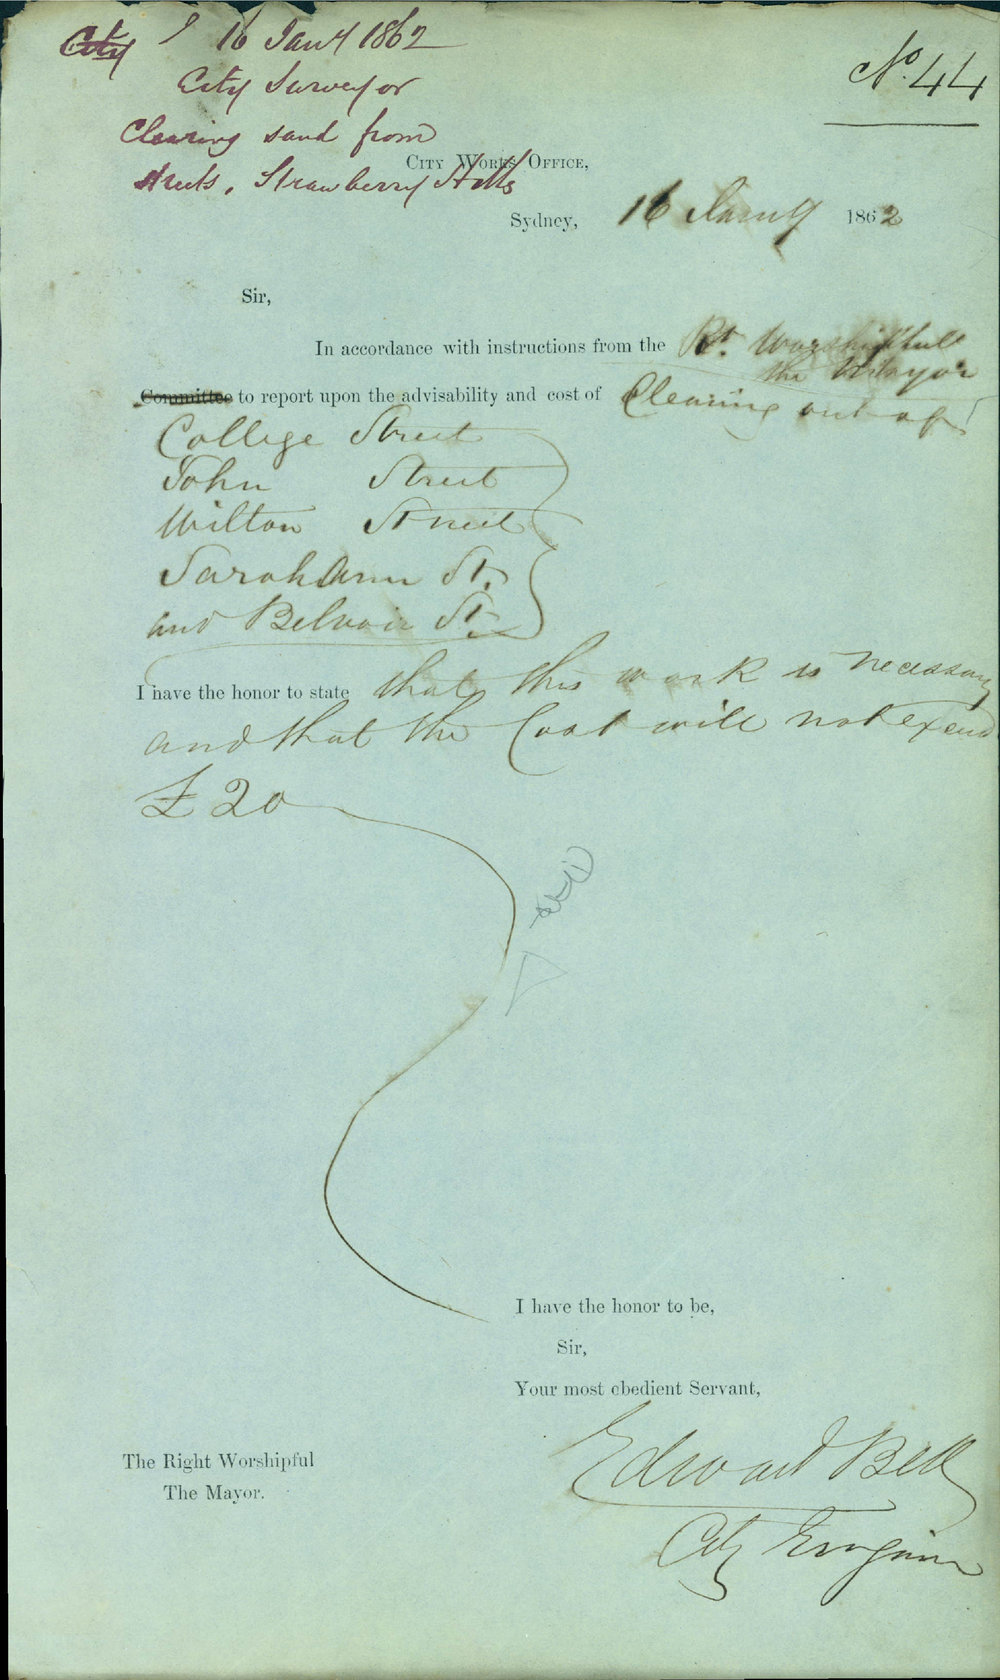 City 16 Jany 1862
City Surveyor
Clearing sand from
streets, Strawberry Hills
No. 44
City Works Office,
Sydney, 16 Jany 1862
Sir,
In accordance with instructions from the Rt. Worshipfull
the Mayor
Committee to report upon the advisability and cost of Cleaning out of
College Street
John Street
Wilton Street
SarahAnn St.
and Belvoir St.
I have the honor to state that this work is necessary
and that the Cost will not exceed
£ 20
I have the honor to be,
Sir,
Your most obedient Servant,
Edward Bell
City Engineer
The Right Worshipful
The Mayor.